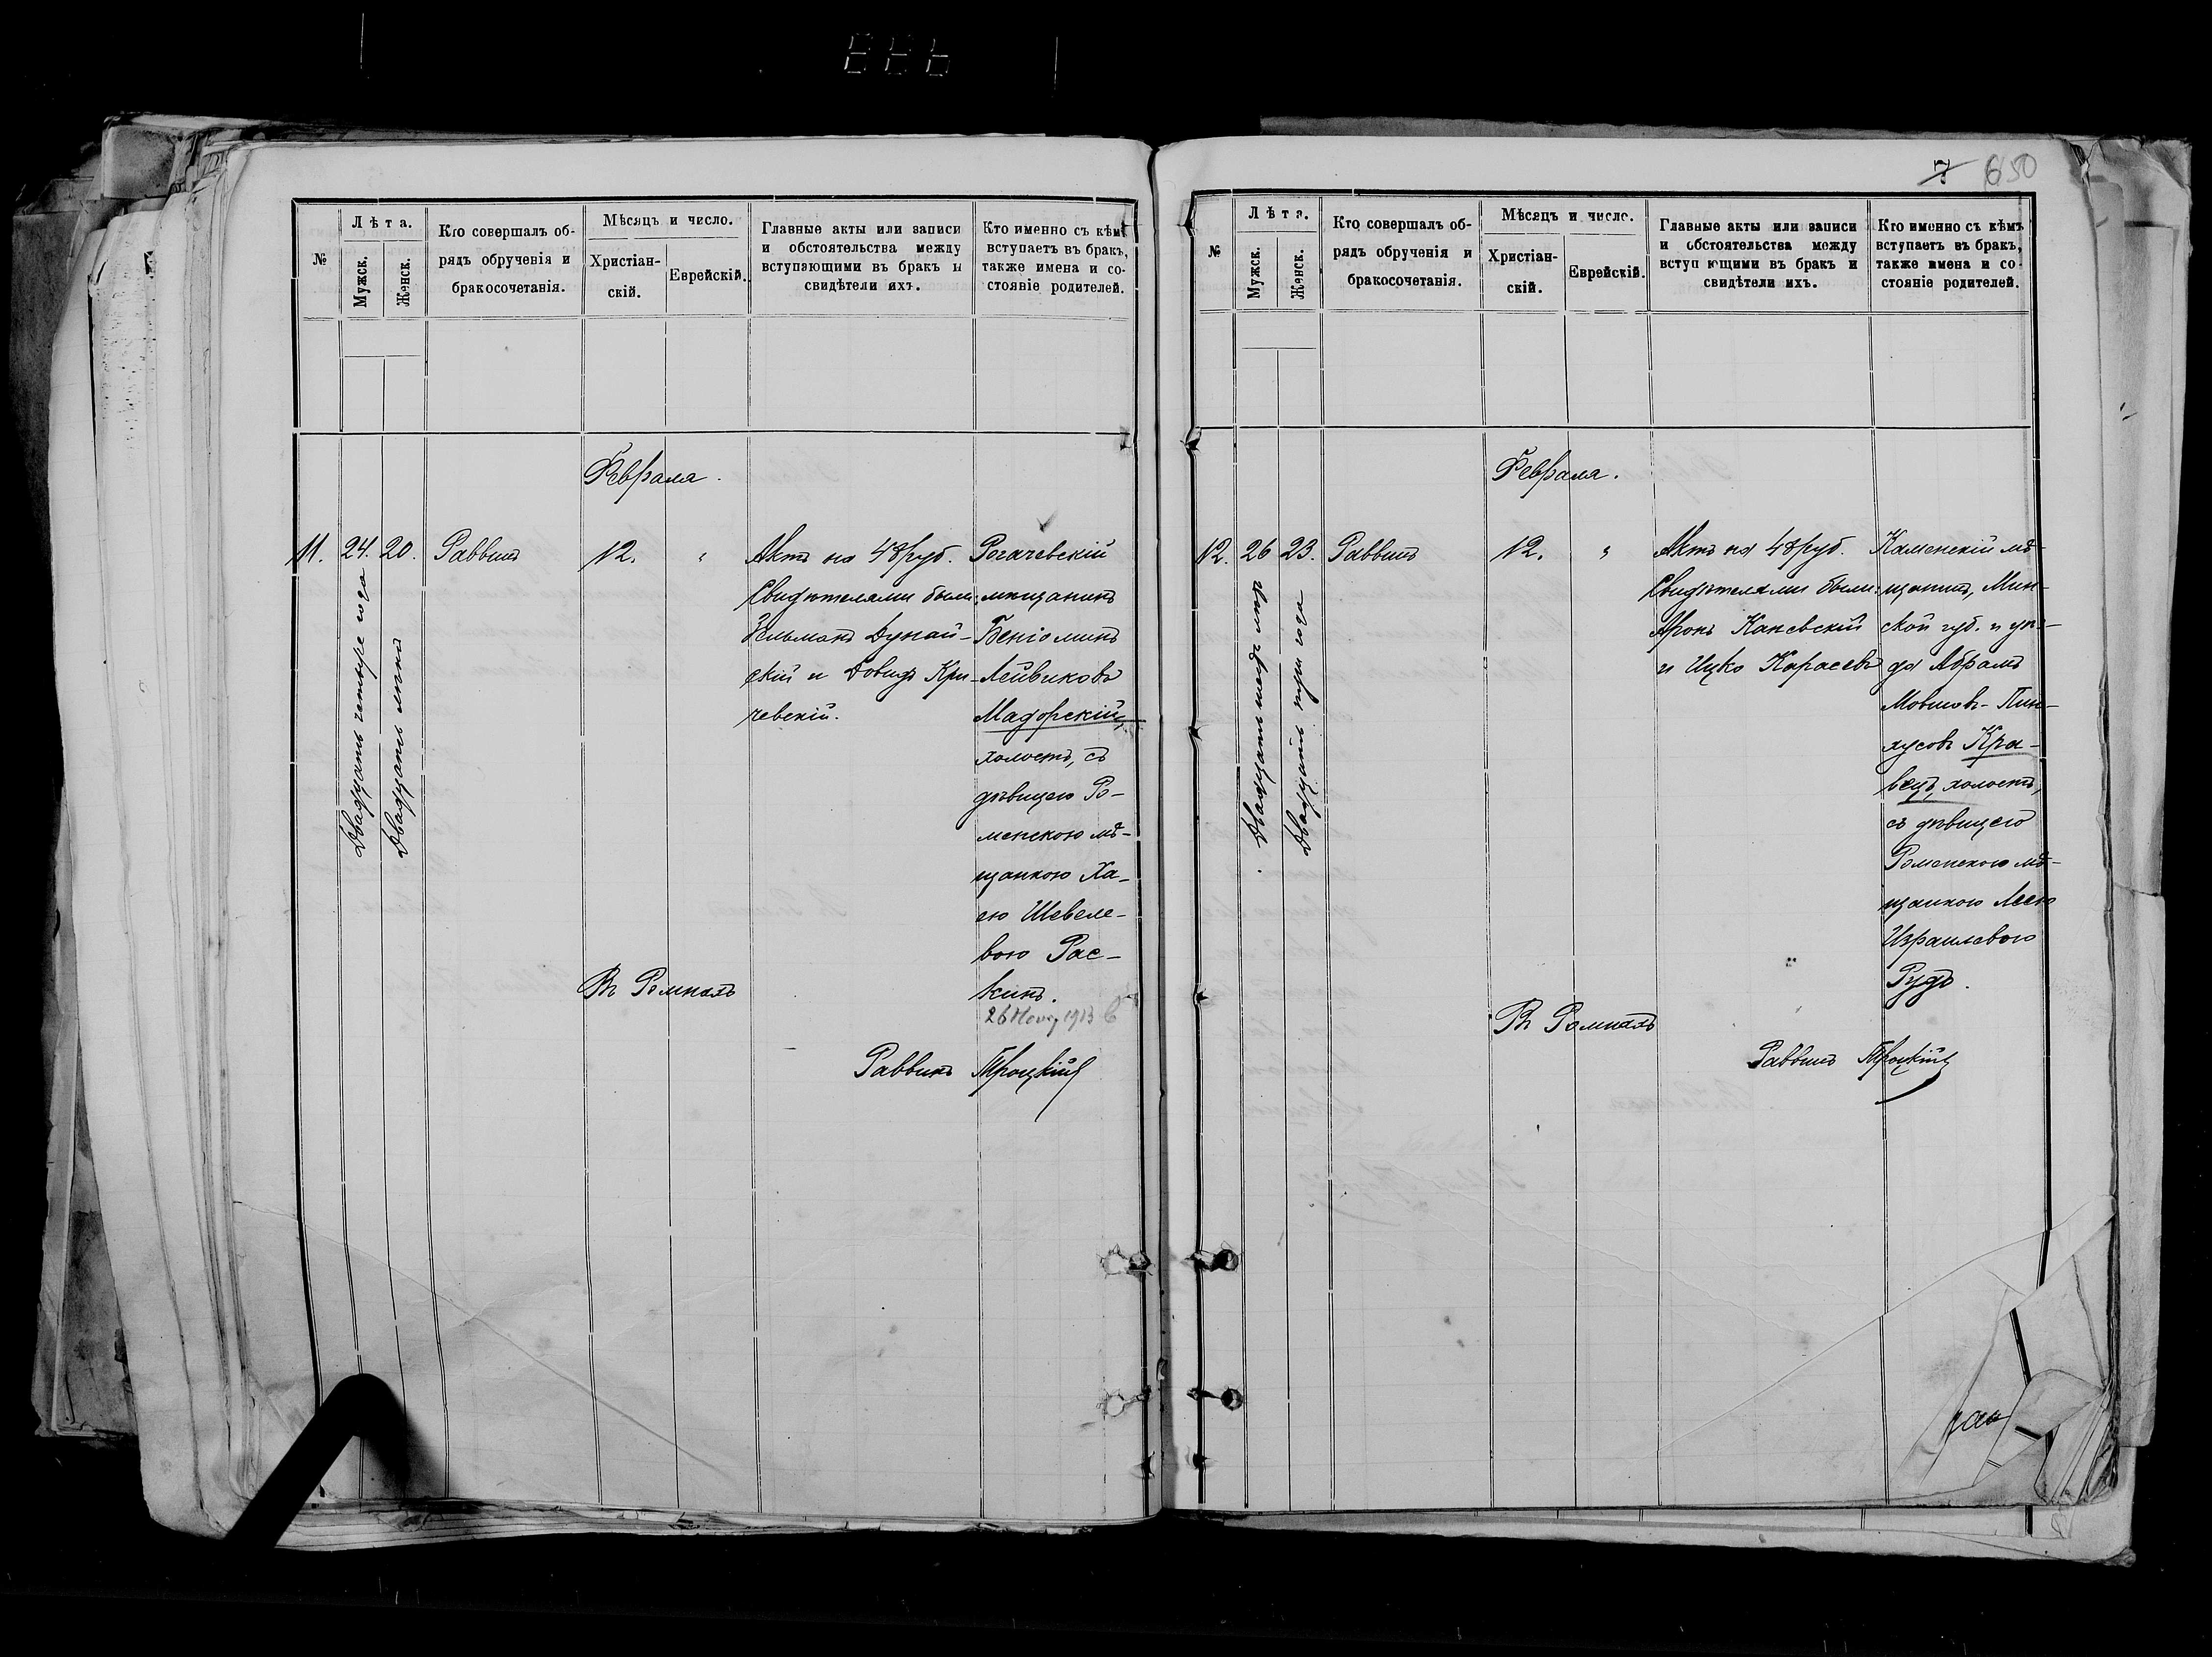 №
Лѣта.
Мужск.
Женск.
Кто совершалъ об-
рядъ обрученія и
бракосочетанія.
Мѣсяцъ и число.
Христіан-
скій.
Еврейскій.
Главные акты или записи
и обстоятельства между
вступающими въ бракъ и
свидѣтели ихъ.
Кто именно съ кѣмъ
вступаетъ въ бракъ,
также имена и со-
стояніе родителей.
Февраля.
11.
24.
Двадцать четыре года
20.
Двадцать лѣтъ
Раввинъ
12.
"
Актъ на 48 руб.
Свидѣтелями были:
Зельманъ Дунай-
скій и Довидъ Кри-
чевскій.
Рогачевскій
мѣщанинъ
Беніоминъ
Лейвиковъ
Мадорскій,
холостъ, съ
дѣвицею Ро-
менскою мѣ-
щанкою Ха-
ею Шевеле-
вою Рас-
кинъ.
Въ Ромнахъ
1913
Раввинъ Троцкій
7 650
№
Лѣта.
Мужск.
Женск.
Кто совершалъ об-
рядъ обрученія и
бракосочетанія.
Мѣсяцъ и число.
Христіан-
скій.
Еврейскій.
Главные акты или записи
и обстоятельства между
вступающими въ бракъ и
свидѣтели ихъ.
Кто именно съ кѣмъ
вступаетъ въ бракъ,
также имена и со-
стояніе родителей.
Февраля.
12.
26
Двадцать шесть лѣтъ
23.
Двадцать три года
Раввинъ
12.
"
Актъ на 48 руб.
Свидѣтелями были:
Аронъ Каневскій
и Ицко Карасевъ
Каменскій мѣ-
щанинъ, Мин-
ской губ. и уѣз-
да Абрамъ
Мовшовъ-Пин-
хусовъ Кра-
вецъ, холостъ,
съ дѣвицею
Роменскою мѣ-
щанкою Леею
Израилевою
Рудъ.
Въ Ромнахъ
Раввинъ Троцкій